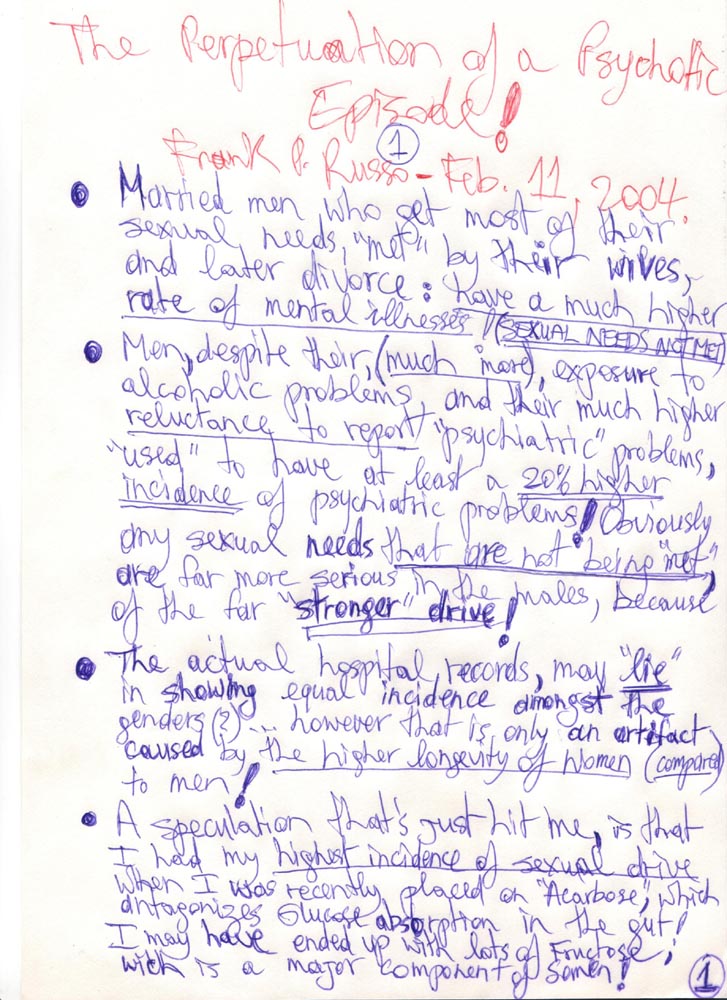 The Perpetuation of a Psychotic
Episode!
①
Frank P. Russo - Feb. 11, 2004.
• Married men who get most of their
sexual needs, "met" by their wives,
and later divorce: have a much higher
rate of mental illnesses! (SEXUAL NEEDS NOT MET)
• Men, despite their, (much more), exposure to
alcoholic problems, and their much higher
reluctance to report "psychiatric" problems,
"used" to have at least a 20% higher
incidence of psychiatric problems! Obviously
any sexual needs that are not being "met",
are far more serious in the males, because
of the far "stronger" drive!
• The actual hospital records, may "lie"
in showing equal incidence amongst the
genders(?)... however that is only an artifact
caused by the higher longevity of women (compared)
to men!
• A speculation that's just hit me, is that
I had my highest incidence of sexual drive
when I was recently placed on "Acarbose", which
antagonizes Glucose absorption in the gut!
I may have ended up with lots of Fructose;
wich is a major component of Semen!
①